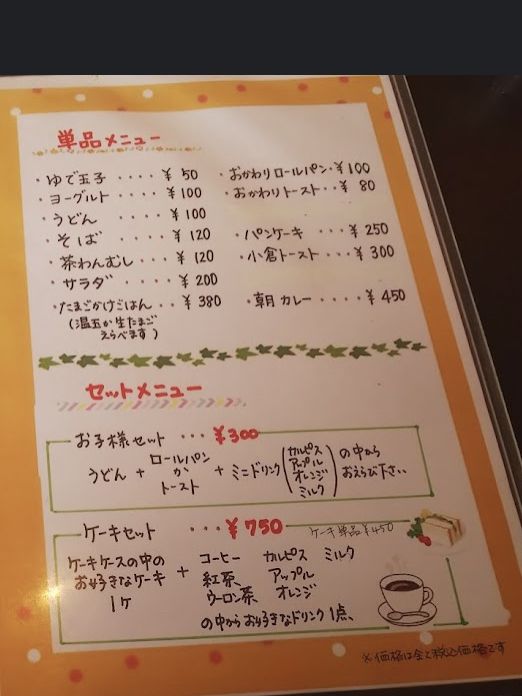 単品メニュー
・ゆで玉子 ････ ¥ 50
・ヨーグルト ････ ¥100
・うどん ････ ¥100
・そば ････ ¥ 120
・茶わんむし ･･･ ¥ 120
・サラダ ････ ¥ 200
・たまごかけごはん ･･ ¥ 380
(温玉か生たまご
えらべます)
・おかわりロールパン・¥100
・おかわりトースト･･ ¥ 80
・パンケーキ ･･･ ¥ 250
・小倉トースト ･･･ ¥ 300
・朝カレー ････ ¥ 450
セットメニュー
お子様セット ･･･ ¥300
うどん + ロールパン か トースト + ミニドリンク (カルピス アップル オレンジ ミルク) の中から おえらび下さい
ケーキセット ･･･ ¥750
ケーキ単品 ¥450
ケーキケースの中の
お好きなケーキ
1ケ
+
コーヒー カルピス ミルク
紅茶 アップル
ウーロン茶 オレンジ
の中からお好きなドリンク1点、
※価格は全て税込価格です